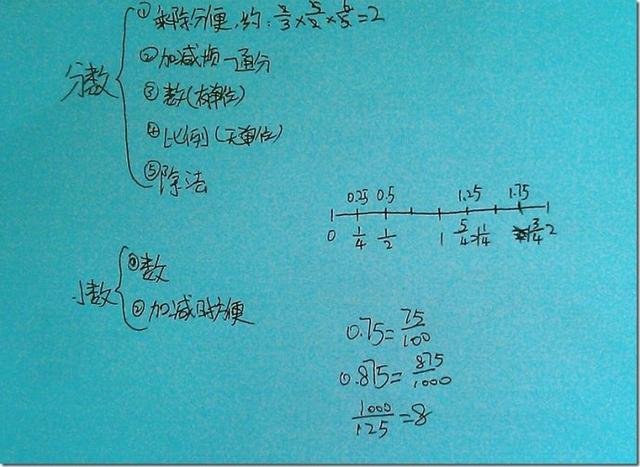 分数
①乘除方便,约:2/3×5/2×6/5=2
②加减烦→通分
③数(有单位)
④比例(无单位)
⑤除法
0.25 0.5 1.25 1.75
0 1/4 1/2 1 5/4=1 1/4 1 3/4 2
小数
①数
②加减时方便
0.75=75/100
0.875=875/1000
1000/125=8